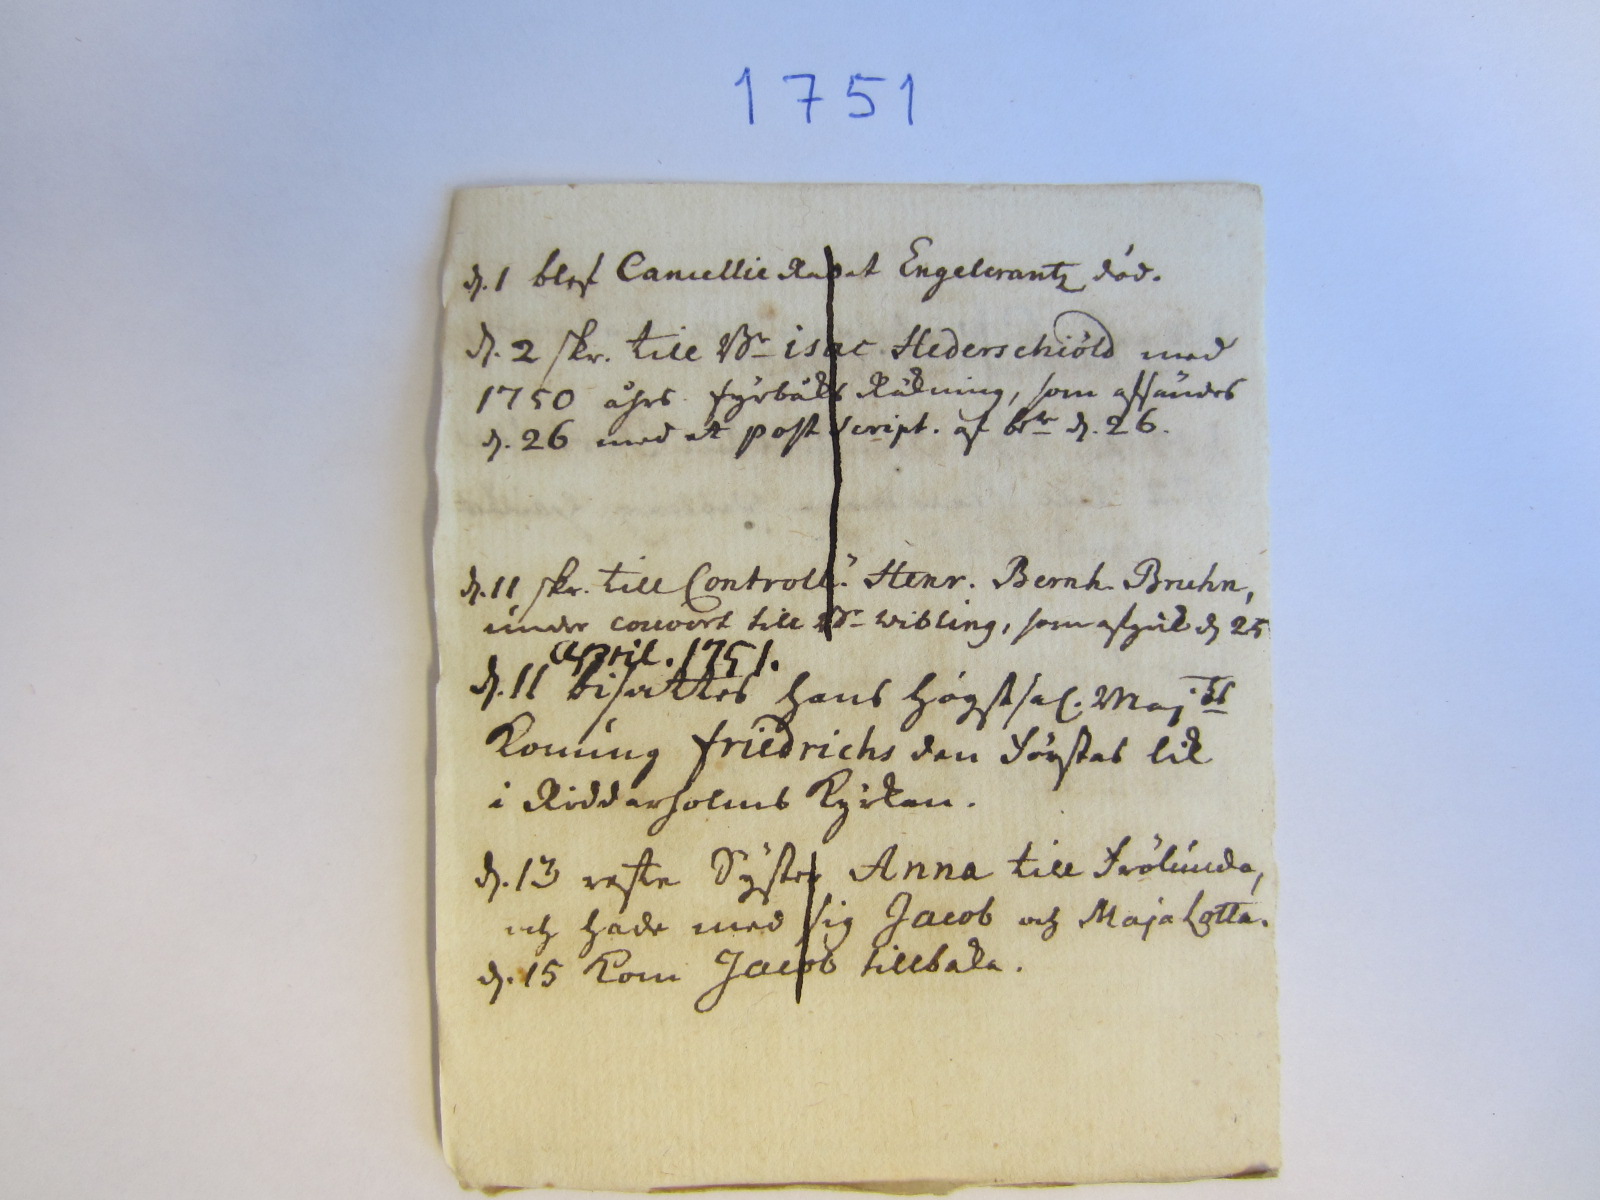 1751
d. 1 blef Cancellie Rådet Engelcrantz död.
d. 2 skr. till Br isac Hederschiöld med
1750 åhrs fyrbåks Räkning, som afsändes
d. 26 med et post script. af d. 26.
d. 11 skr. till Controll: Henr. Bernh. Bruhn,
under couvert till Br wibling, som afgick d 25
april. 1751.
d. 11 bisattes hans högstsal. Maj:ts
Konung friedrichs den Förstas lik
i Ridderholms Kyrkan.
d. 13 reste Syster Anna till Frölunda,
och hade med sig Jacob och Maja Lotta.
d. 15 kom Jacob tillbaka.